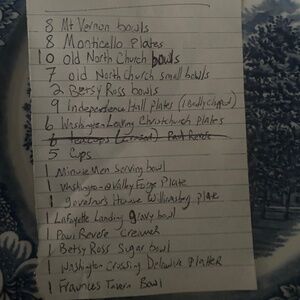 8 Mt Vernon bowls
8 Monticello Plates
10 old North Church bowls
7 old North Church small bowls
2 Betsy Ross bowls
9 Independence Hall plates (1 Badly chipped)
6 Washington Leaving Christchurch plates
6 teacups Paul Revere
5 Cups
1 Minute Men Serving bowl
1 Washington @ Valley Forge Plate
1 Governors House Williamsburg Plate
1 Lafayette Landing gravy bowl
1 Paul Revere Creamer
1 Betsy Ross Sugar bowl
1 Washington Crossing Delaware Platter
1 Fraunces Tavern Bowl